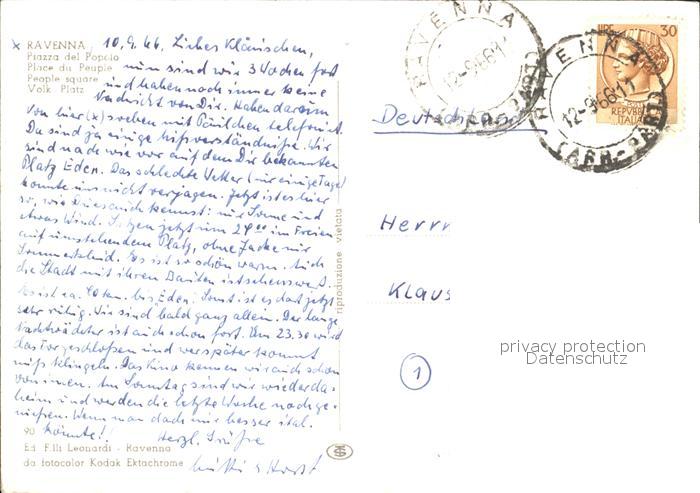 x RAVENNA 10.9.66. Liebes Kläuschen,
Piazza del Popolo
Place du Peuple nun sind wir 3 Wochen fort
People square und haben noch immer keine
Volk Platz Nachricht von Dir. Haben darum
von hier (x) soeben mit Päulchen telefoniert.
Da sind ja einige Mißverständnisse. Wir
sind nach wie vor auf dem Dir bekannten
Platz Eden. Das schlechte Wetter (nur einige Tage)
konnte uns nicht verjagen. Jetzt ist es hier
so, wie Du es auch kennst: nur Sonne und
etwas Wind. Sitzen jetzt um 21.00 im Freien
auf umstehendem Platz, ohne Jacke nur
Sommerkleid. Es ist so schön warm. Auch
die Stadt mit ihren Bauten ist sehenswert.
Es ist ca. 10 km. bis Eden. Sonst ist es dort jetzt
sehr ruhig. Wir sind bald ganz allein. Der lange
Nachtwächter ist auch schon fort. Um 23.30 wird
das Tor geschlossen und wer später kommt
muß klingeln. Das Kino kennen wir auch schon
von innen. Am Sonntag sind wir wieder da-
heim und werden die letzte Woche noch ge-
nießen. Wenn man doch nur besser ital.
90 könnte!! Herzl. Grüße
Ed. F.lli Leonardi - Ravenna
da fotocolor Kodak Ektachrome Mutti & Horst
riproduzione vietata
RAVENNA
12-9-66 11
(ARR.-PART.)
RAVENNA
12-9-66 11
(ARR.-PART.)
LIRE 30
REPVBBLICA
ITALIANA
Deutschland
Herrn
Klaus
1
privacy protection
Datenschutz